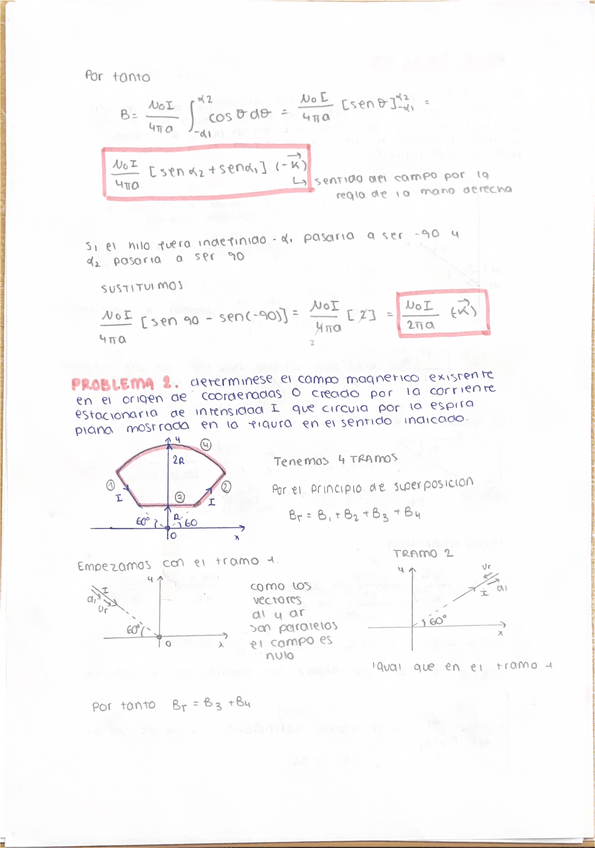 Por tanto
B = μ₀I/4πa ∫_{-α1}^{α2} cos θ dθ = μ₀I/4πa [sen θ]_{-α1}^{α2} =
μ₀I/4πa [sen α2 + sen α1] (-K⃗)
↳ sentido del campo por la
regla de la mano derecha
Si el hilo fuera indefinido -α1 pasaria a ser -90 y
α2 pasaria a ser 90
SUSTITUIMOS
μ₀I/4πa [sen 90 - sen(-90)] = μ₀I/4πa [2] = μ₀I/2πa (-K⃗)
2
PROBLEMA 2. determinese el campo magnetico existente
en el origen de coordenadas O creado por la corriente
estacionaria de intensidad I que circula por la espira
plana mostrada en la figura en el sentido indicado.
y
④
2R
①
②
I
③
I
R
60°
60
O
x
Tenemos 4 TRAMOS
Por el principio de superposicion
BT = B1 + B2 + B3 + B4
Empezamos con el tramo 1
TRAMO 2
y
I
dl
Ur
60°
O
x
como los
vectores
dl y ur
son paralelos
el campo es
nulo
y
Ur
dl
I
60°
x
Igual que en el tramo 1
Por tanto BT = B3 + B4